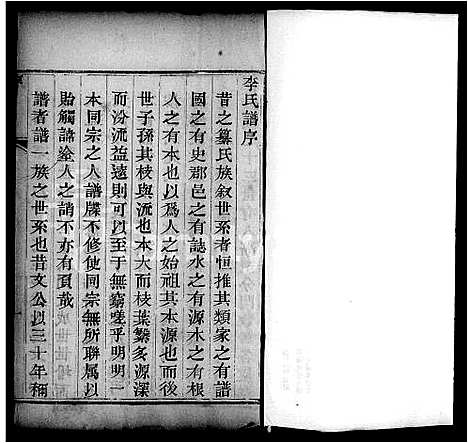 李氏譜序
昔之纂氏族叙世系者恒推其類家之有譜
國之有史郡邑之有誌水之有源木之有根
人之有本也以爲人之始祖其本源也而後
世子孫其枝與流也本大而枝葉繁多源深
而汾流益遠則可以至于無窮嗟乎明明一
本同宗之人譜牒不修使同宗無所聯属以
貽觸諦塗人之誚不亦有貭哉
譜者譜一族之世系也昔文公以三十年稱